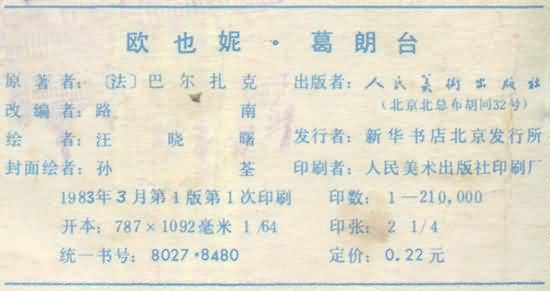 欧也妮·葛朗台
原著者：〔法〕巴尔扎克
改编者：路南
绘者：汪晓曙
封面绘者：孙荃
1983年3月第1版第1次印刷
开本：787×1092毫米 1/64
统一书号：8027·8480
出版者：人民美術出版社
（北京北总布胡同32号）
发行者：新华书店北京发行所
印刷者：人民美术出版社印刷厂
印数：1—210,000
印张：2 1/4
定价：0.22元